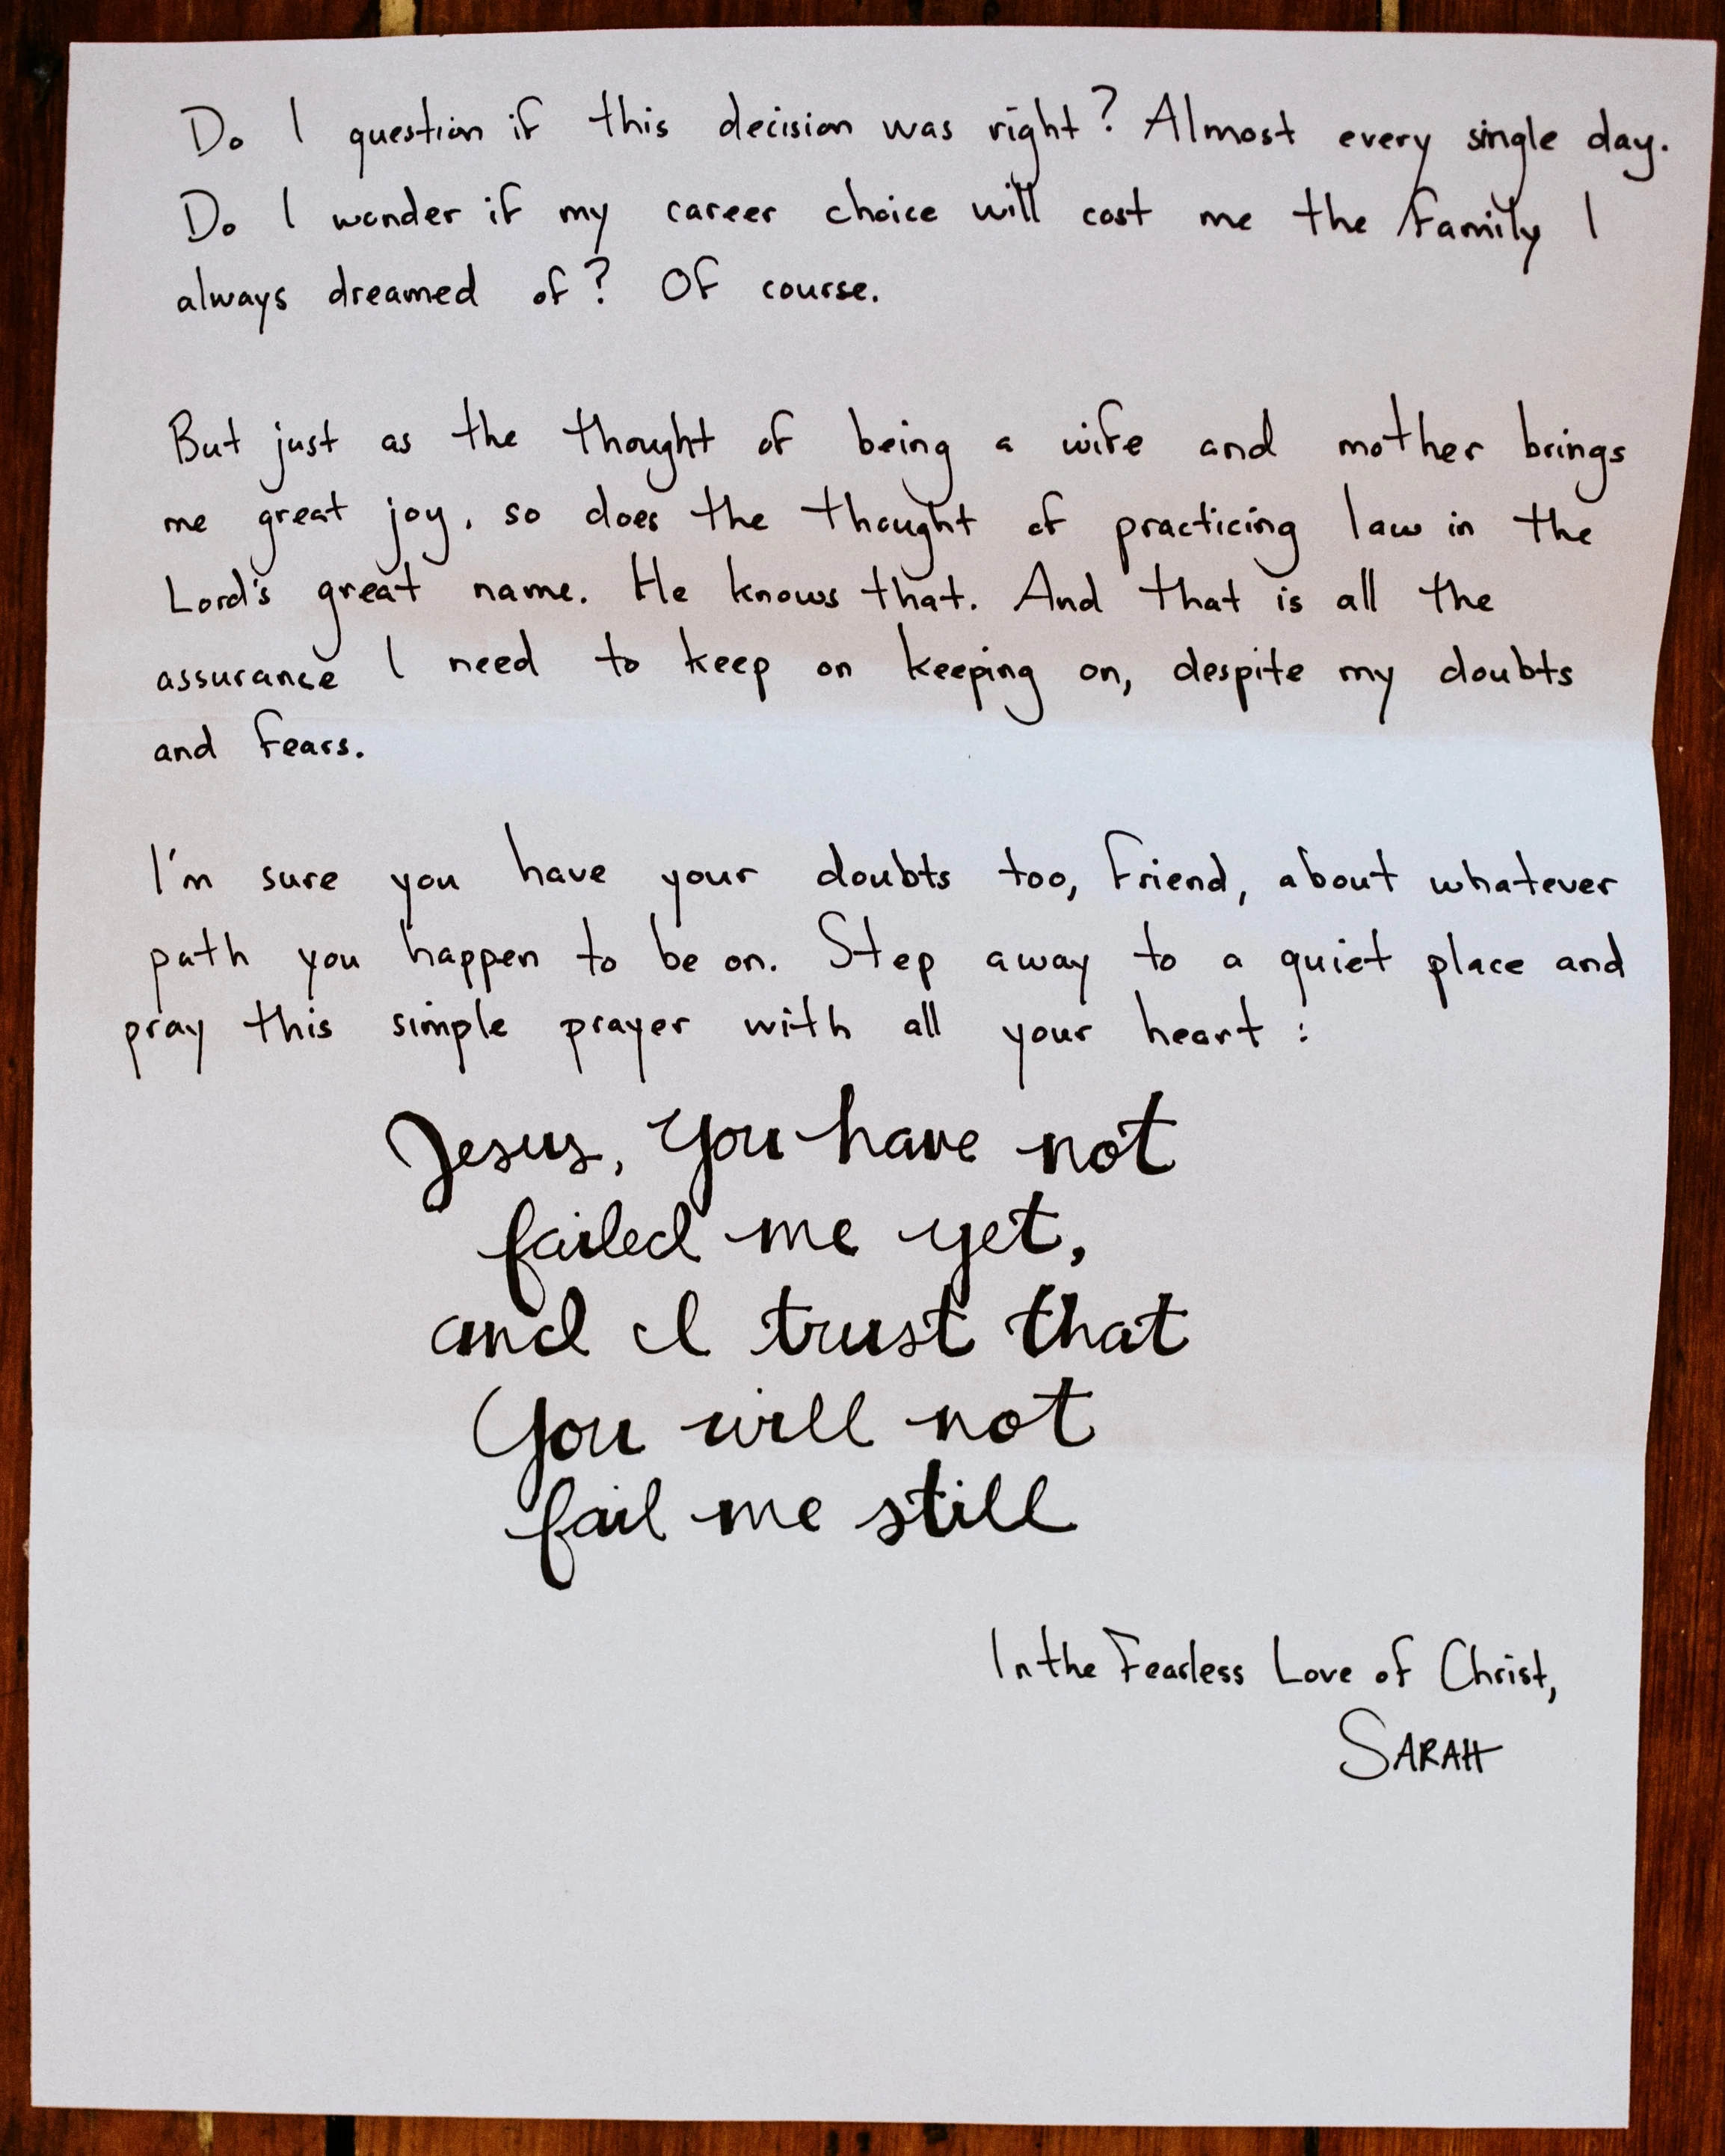 Do I question if this decision was right? Almost every single day.
Do I wonder if my career choice will cost me the family I
always dreamed of? Of course.
But just as the thought of being a wife and mother brings
me great joy, so does the thought of practicing law in the
Lord's great name. He knows that. And that is all the
assurance I need to keep on keeping on, despite my doubts
and fears.
I'm sure you have your doubts too, friend, about whatever
path you happen to be on. Step away to a quiet place and
pray this simple prayer with all your heart:
Jesus, You have not
failed me yet,
and I trust that
You will not
fail me still
In the Fearless Love of Christ,
SARAH